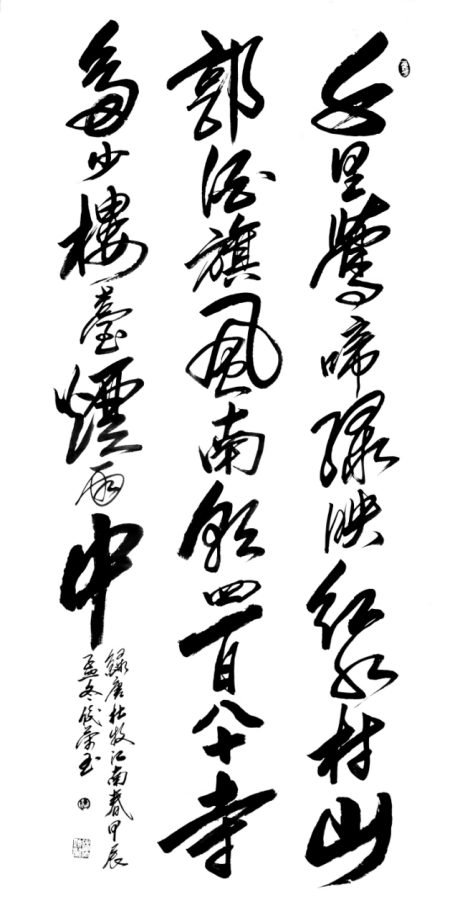 千里鶯啼綠映紅水村山
郭酒旗風南朝四百八十寺
多少樓臺煙雨中
錄唐杜牧江南春甲辰
孟冬榮玉